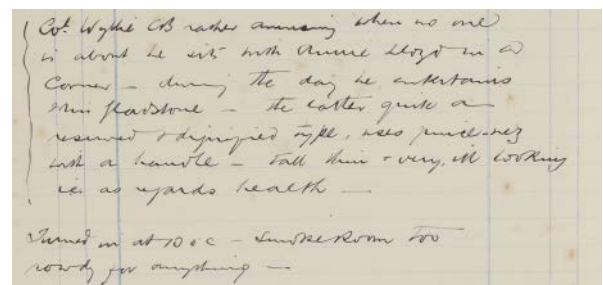 Col. Wyllie CB rather amusing when no one
is about he sits with Annie Lloyd in a
Corner – during the day he entertains
Mrs Gladstone – the latter quite a
reserved & dignified type, uses pince-nez
with a handle – Tall thin & very ill looking
ie: as regards health –
Turned in at 10 oc – Smoke Room too
rowdy for anything –